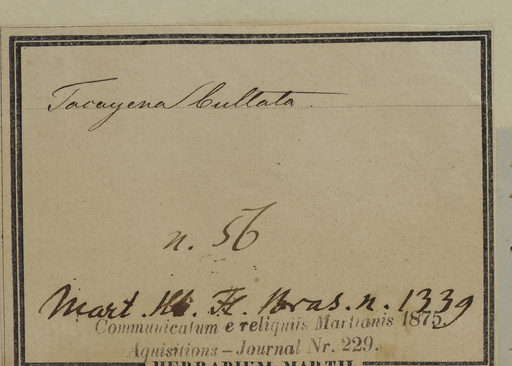 Tocoyena bullata
n. 56
Mart. Hb. Fl. Bras. n. 1339
Communicatum e reliquiis Martianis 1875.
Aquisitions – Journal Nr. 229.
HERBARIUM MARTII